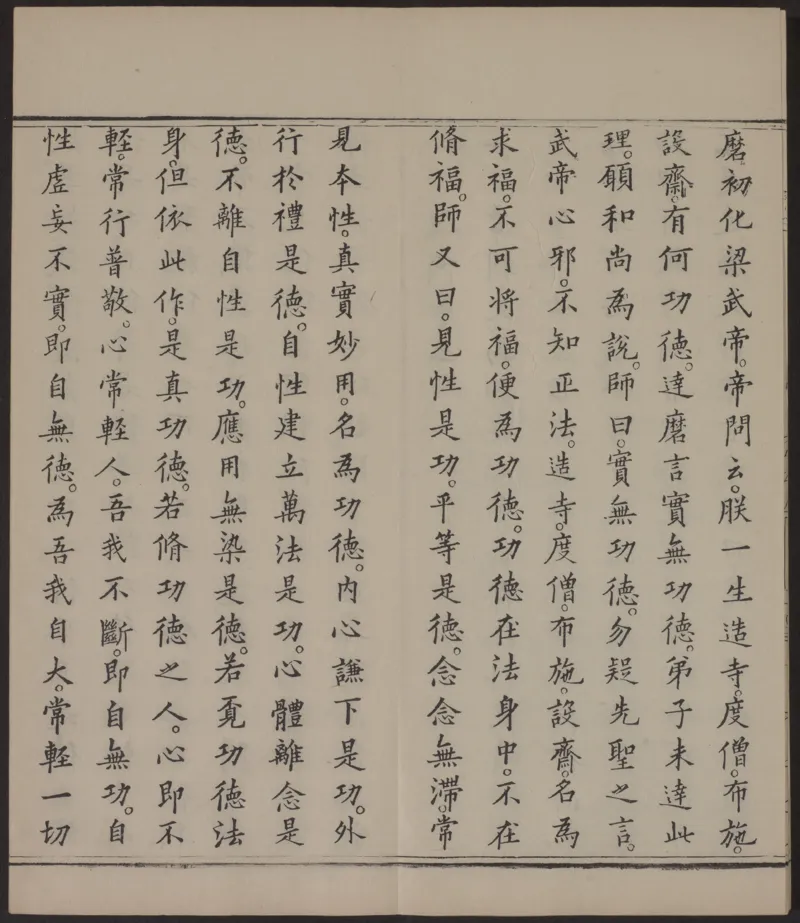 磨。初化梁武帝。帝問云。朕一生造寺。度僧。布施。
設齋。有何功德。達磨言實無功德。弟子未達此
理。願和尚為說。師曰。實無功德。勿疑先聖之言。
武帝心邪。不知正法。造寺。度僧。布施。設齋。名為
求福。不可將福。便為功德。功德在法身中。不在
脩福。師又曰。見性是功。平等是德。念念無滯。常
見本性。真實妙用。名為功德。内心謙下是功。外
行於禮是德。自性建立萬法是功。心體離念是
德。不離自性是功。應用無染是德。若覔功德法
身。但依此作。是真功德。若脩功德之人。心即不
輕。常行普敬。心常輕人。吾我不斷。即自無功。自
性虛妄不實。即自無德。為吾我自大。常輕一切